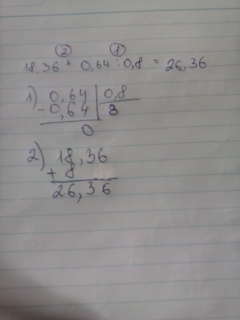 ② ①
18,36 + 0,64 : 0,8 = 26,36
1) 0,64 | 0,8
- 0,64 | 8
0
2) 18,36
+ 8
26,36